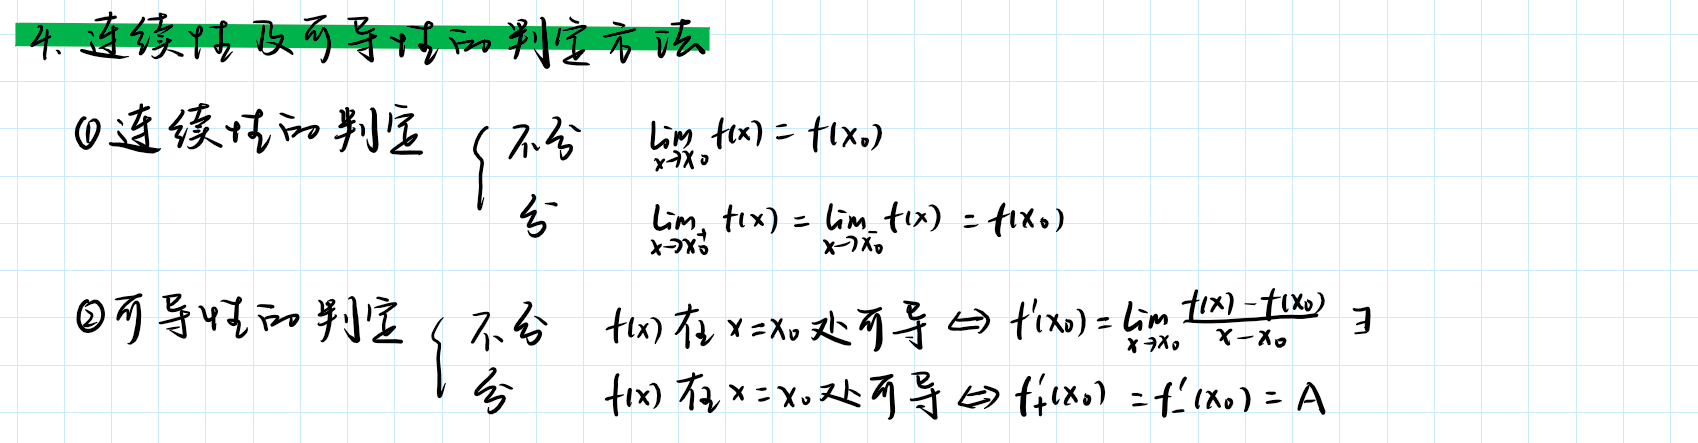 4. 连续性及可导性的判定方法
①连续性的判定 { 不分 lim_{x→x₀} f(x) = f(x₀)
分 lim_{x→x₀⁺} f(x) = lim_{x→x₀⁻} f(x) = f(x₀)
②可导性的判定 { 不分 f(x) 在 x=x₀ 处可导 ⇔ f'(x₀) = lim_{x→x₀} (f(x)-f(x₀))/(x-x₀) ∃
分 f(x) 在 x=x₀ 处可导 ⇔ f'₊(x₀) = f'₋(x₀) = A